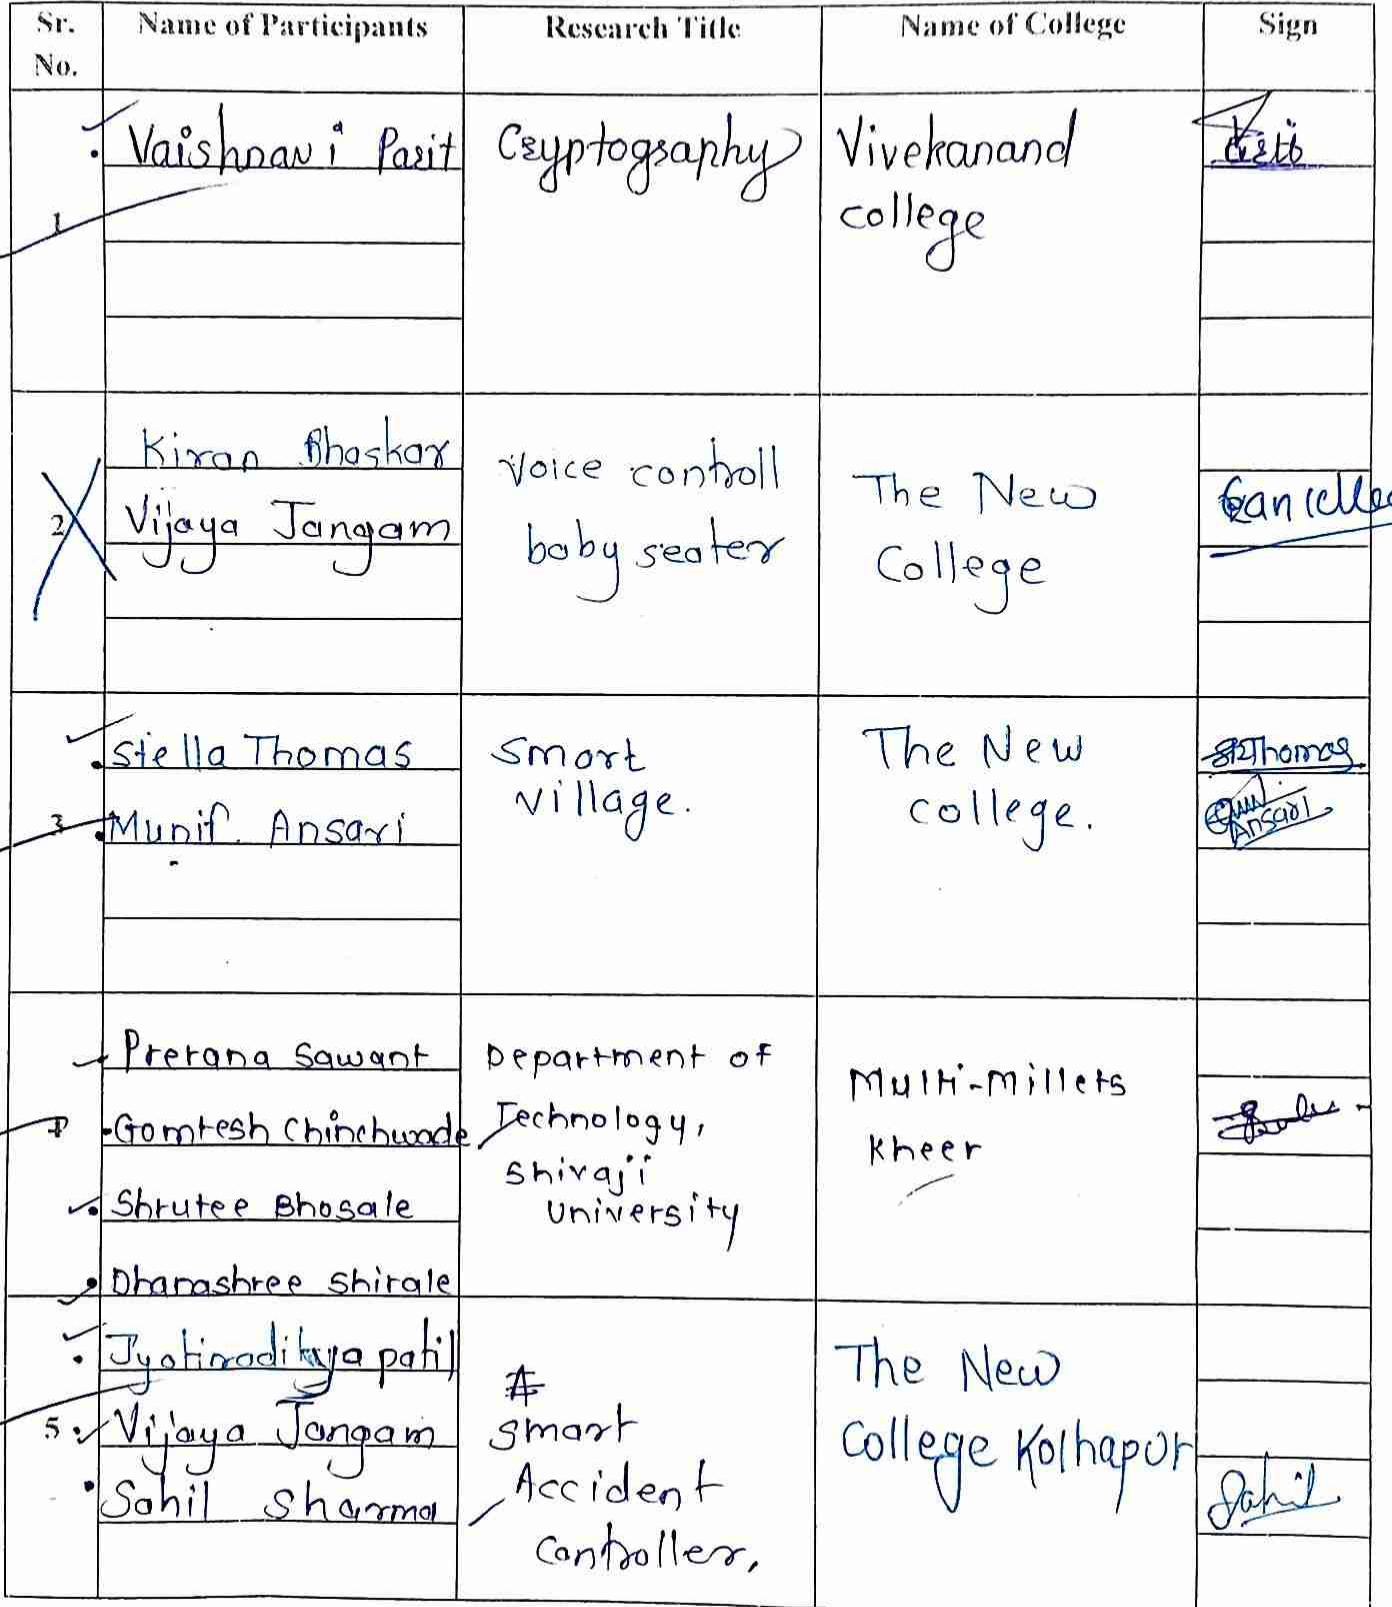 Sr. No.
Name of Participants
Research Title
Name of College
Sign
1
Vaishnavi Parit
Cryptography
Vivekanand
college
2
Kiran Bhaskar
Vijaya Jangam
Voice controll
baby seater
The New
College
Cancelled
3
Stella Thomas
Munif. Ansari
Smart
village.
The New
college.
Thomas
Ansari
4
Prerana Sawant
Gomtesh Chinchwade
Shrutee Bhosale
Dhanashree Shirale
Department of
Technology,
Shivaji
University
Multi-Millets
Kheer
5
Jyotiraditya patil
Vijaya Jangam
Sahil Sharma
Smart
Accident
Controller.
The New
College Kolhapur
Sahil